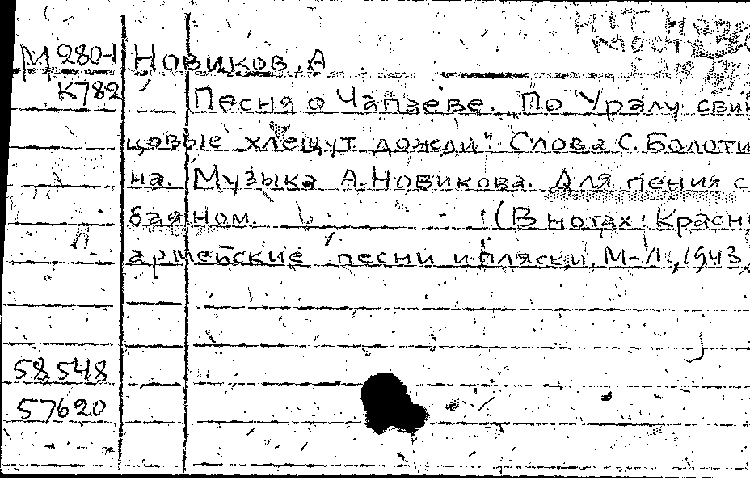 М 2801 Новиков, А
К782 Песня о Чапаеве. "По Уралу сви
цовые хлещут дожди". Слова С. Болоти
на. Музыка А. Новикова. Для пения с
баяном. (В нотах: Красн
армейские песни и пляски, М-Л, 1943,
58548
57620